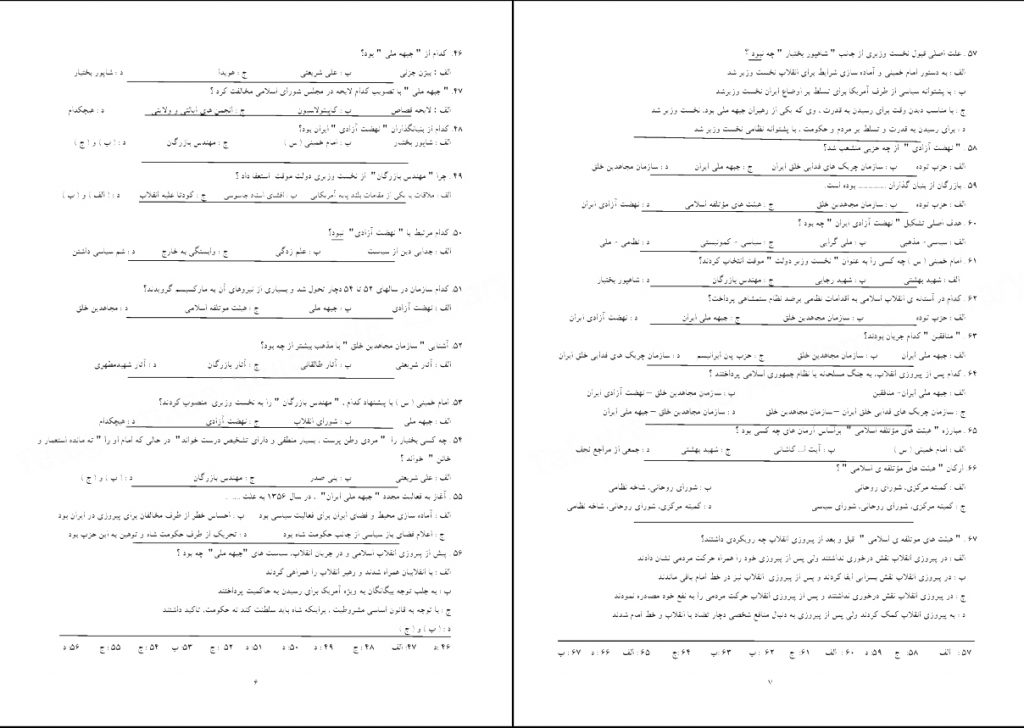 ۵۷. علت اصلی قبول نخست وزیری از جانب " شاهپور بختیار " چه نبود ؟
الف : به دستور امام خمینی و آماده سازی شرایط برای انقلاب نخست وزیر شد
ب : با پشتوانه سیاسی از طرف آمریکا برای تسلط بر اوضاع ایران نخست وزیرشد
ج : با مناسب دیدن وقت برای رسیدن به قدرت ، وی که یکی از رهبران جبهه ملی بود، نخست وزیر شد
د : برای رسیدن به قدرت و تسلط بر مردم و حکومت ، با پشتوانه نظامی نخست وزیر شد
۵۸. " نهضت آزادی " از چه حزبی منشعب شد؟
الف : حزب توده ب : سازمان چریک های فدایی خلق ایران ج : جبهه ملی ایران د : سازمان مجاهدین خلق
۵۹. بازرگان از بنیان گذاران .............. بوده است.
الف : حزب توده ب : سازمان مجاهدین خلق ج : هیئت های مؤتلفه اسلامی د : نهضت آزادی ایران
۶۰. هدف اصلی تشکیل " نهضت آزادی ایران " چه بود ؟
الف : سیاسی - مذهبی ب : ملی گرایی ج : سیاسی - کمونیستی د : نظامی - ملی
۶۱. امام خمینی ( س ) چه کسی را به عنوان " نخست وزیر دولت " موقت انتخاب کردند؟
الف : شهید بهشتی ب : شهید رجایی ج : مهندس بازرگان د : شاهپور بختیار
۶۲. کدام در آستانه ی انقلاب اسلامی به اقدامات نظامی برضد نظام ستمشاهی پرداخت؟
الف : حزب توده ب : سازمان مجاهدین خلق ج : جبهه ملی ایران د : نهضت آزادی ایران
۶۳. " منافقین " کدام جریان بودند؟
الف : جبهه ملی ایران ب : سازمان مجاهدین خلق ج : حزب پان ایرانیسم د : سازمان چریک های فدایی خلق ایران
۶۴. کدام پس از پیروزی انقلاب، به جنگ مسلحانه با نظام جمهوری اسلامی پرداختند ؟
الف : جبهه ملی ایران- منافقین ب : سازمان مجاهدین خلق – نهضت آزادی ایران
ج : سازمان چریک های فدایی خلق ایران – سازمان مجاهدین خلق د : سازمان مجاهدین خلق – جبهه ملی ایران
۶۵. مبارزه " هیئت های مؤتلفه اسلامی " براساس آرمان های چه کسی بود ؟
الف : امام خمینی ( س ) ب : آیت ا... کاشانی ج : شهید بهشتی د : جمعی از مراجع نجف
۶۶. ارکان " هیئت های مؤتلفه ی اسلامی " ؟
الف : کمیته مرکزی، شورای روحانی ب : شورای روحانی، شاخه نظامی
ج : کمیته مرکزی، شورای روحانی، شورای سیاسی د : کمیته مرکزی، شورای روحانی، شاخه نظامی
۶۷. " هیئت های موتلفه ی اسلامی " قبل و بعد از پیروزی انقلاب چه رویکردی داشتند؟
الف : در پیروزی انقلاب نقش درخوری نداشتند ولی پس از پیروزی خود را همراه حرکت مردمی نشان دادند
ب : در پیروزی انقلاب نقش بسزایی ایفا کردند و پس از پیروزی انقلاب نیز در خط امام باقی ماندند
ج : در پیروزی انقلاب نقش درخوری نداشتند و پس از پیروزی انقلاب حرکت مردمی را به نفع خود مصادره نمودند
د : به پیروزی انقلاب کمک کردند ولی پس از پیروزی به دنبال منافع شخصی دچار تضاد با انقلاب و خط امام شدند
۵۷: الف ۵۸: ج ۵۹: د ۶۰: الف ۶۱: ج ۶۲: ب ۶۳: ب ۶۴: ج ۶۵: الف ۶۶: د ۶۷: ب
۷
۴۶. کدام از " جبهه ملی " بود؟
الف : بیژن جزنی ب : علی شریعتی ج : هویدا د : شاپور بختیار
۴۷. " جبهه ملی " با تصویب کدام لایحه در مجلس شورای اسلامی مخالفت کرد ؟
الف : لایحه قصاص ب : کاپیتولاسیون ج : انجمن های ایالتی و ولایتی د : هیچکدام
۴۸. کدام از بنیانگذاران " نهضت آزادی " ایران بود؟
الف : شاپور بختیار ب : امام خمینی ( س ) ج : مهندس بازرگان د : ( ب ) و ( ج )
۴۹. چرا " مهندس بازرگان " از نخست وزیری دولت موقت استعفا داد ؟
الف : ملاقات با یکی از مقامات بلند پایه آمریکایی ب : افشای اسناد جاسوسی ج : کودتا علیه انقلاب د : ( الف ) و ( ب )
۵۰. کدام مرتبط با " نهضت آزادی" نبود؟
الف : جدایی دین از سیاست ب : علم زدگی ج : وابستگی به خارج د : شم سیاسی داشتن
۵۱. کدام سازمان در سالهای ۵۲ تا ۵۴ دچار تحول شد و بسیاری از نیروهای آن به مارکسیسم گرویدند؟
الف : نهضت آزادی ب : جبهه ملی ج : هیئت موتلفه اسلامی د : مجاهدین خلق
۵۲. آشنایی " سازمان مجاهدین خلق " با مذهب بیشتر از چه بود؟
الف : آثار شریعتی ب : آثار طالقانی ج : آثار بازرگان د : آثار شهیدمطهری
۵۳. امام خمینی ( س ) با پیشنهاد کدام ، " مهندس بازرگان " را به نخست وزیری منصوب کردند؟
الف : جبهه ملی ب : شورای انقلاب ج : نهضت آزادی د : هیچکدام
۵۴. چه کسی بختیار را " مردی وطن پرست ، بسیار منطقی و دارای تشخیص درست خواند" در حالی که امام او را " ته مانده استعمار و
خائن " خواند ؟
الف : علی شریعتی ب : بنی صدر ج : مهندس بازرگان د : ( ب ) و ( ج )
۵۵. آغاز به فعالیت مجدد " جبهه ملی ایران" ، در سال ۱۳۵۶ به علت .....
الف : آماده سازی محیط و فضای ایران برای فعالیت سیاسی بود ب : احساس خطر از طرف مخالفان برای پیروزی در ایران بود
ج : اعلام فضای باز سیاسی از جانب حکومت شاه بود د : تحریک از طرف حکومت شاه و توهین به این حزب بود
۵۶. پیش از پیروزی انقلاب اسلامی و در جریان انقلاب، سیاست های "جبهه ملی" چه بود ؟
الف : با انقلابیان همراه شدند و رهبر انقلاب را همراهی کردند
ب : به جلب توجه بیگانگان به ویژه آمریکا برای رسیدن به حاکمیت پرداختند
ج : با توجه به قانون اساسی مشروطیت ، براینکه شاه باید سلطنت کند نه حکومت، تاکید داشتند
د : ( ب ) و ( ج )
۴۶: د ۴۷: الف ۴۸: ج ۴۹: د ۵۰: د ۵۱: د ۵۲: ج ۵۳: ب ۵۴: ج ۵۵: ج ۵۶: د
۶